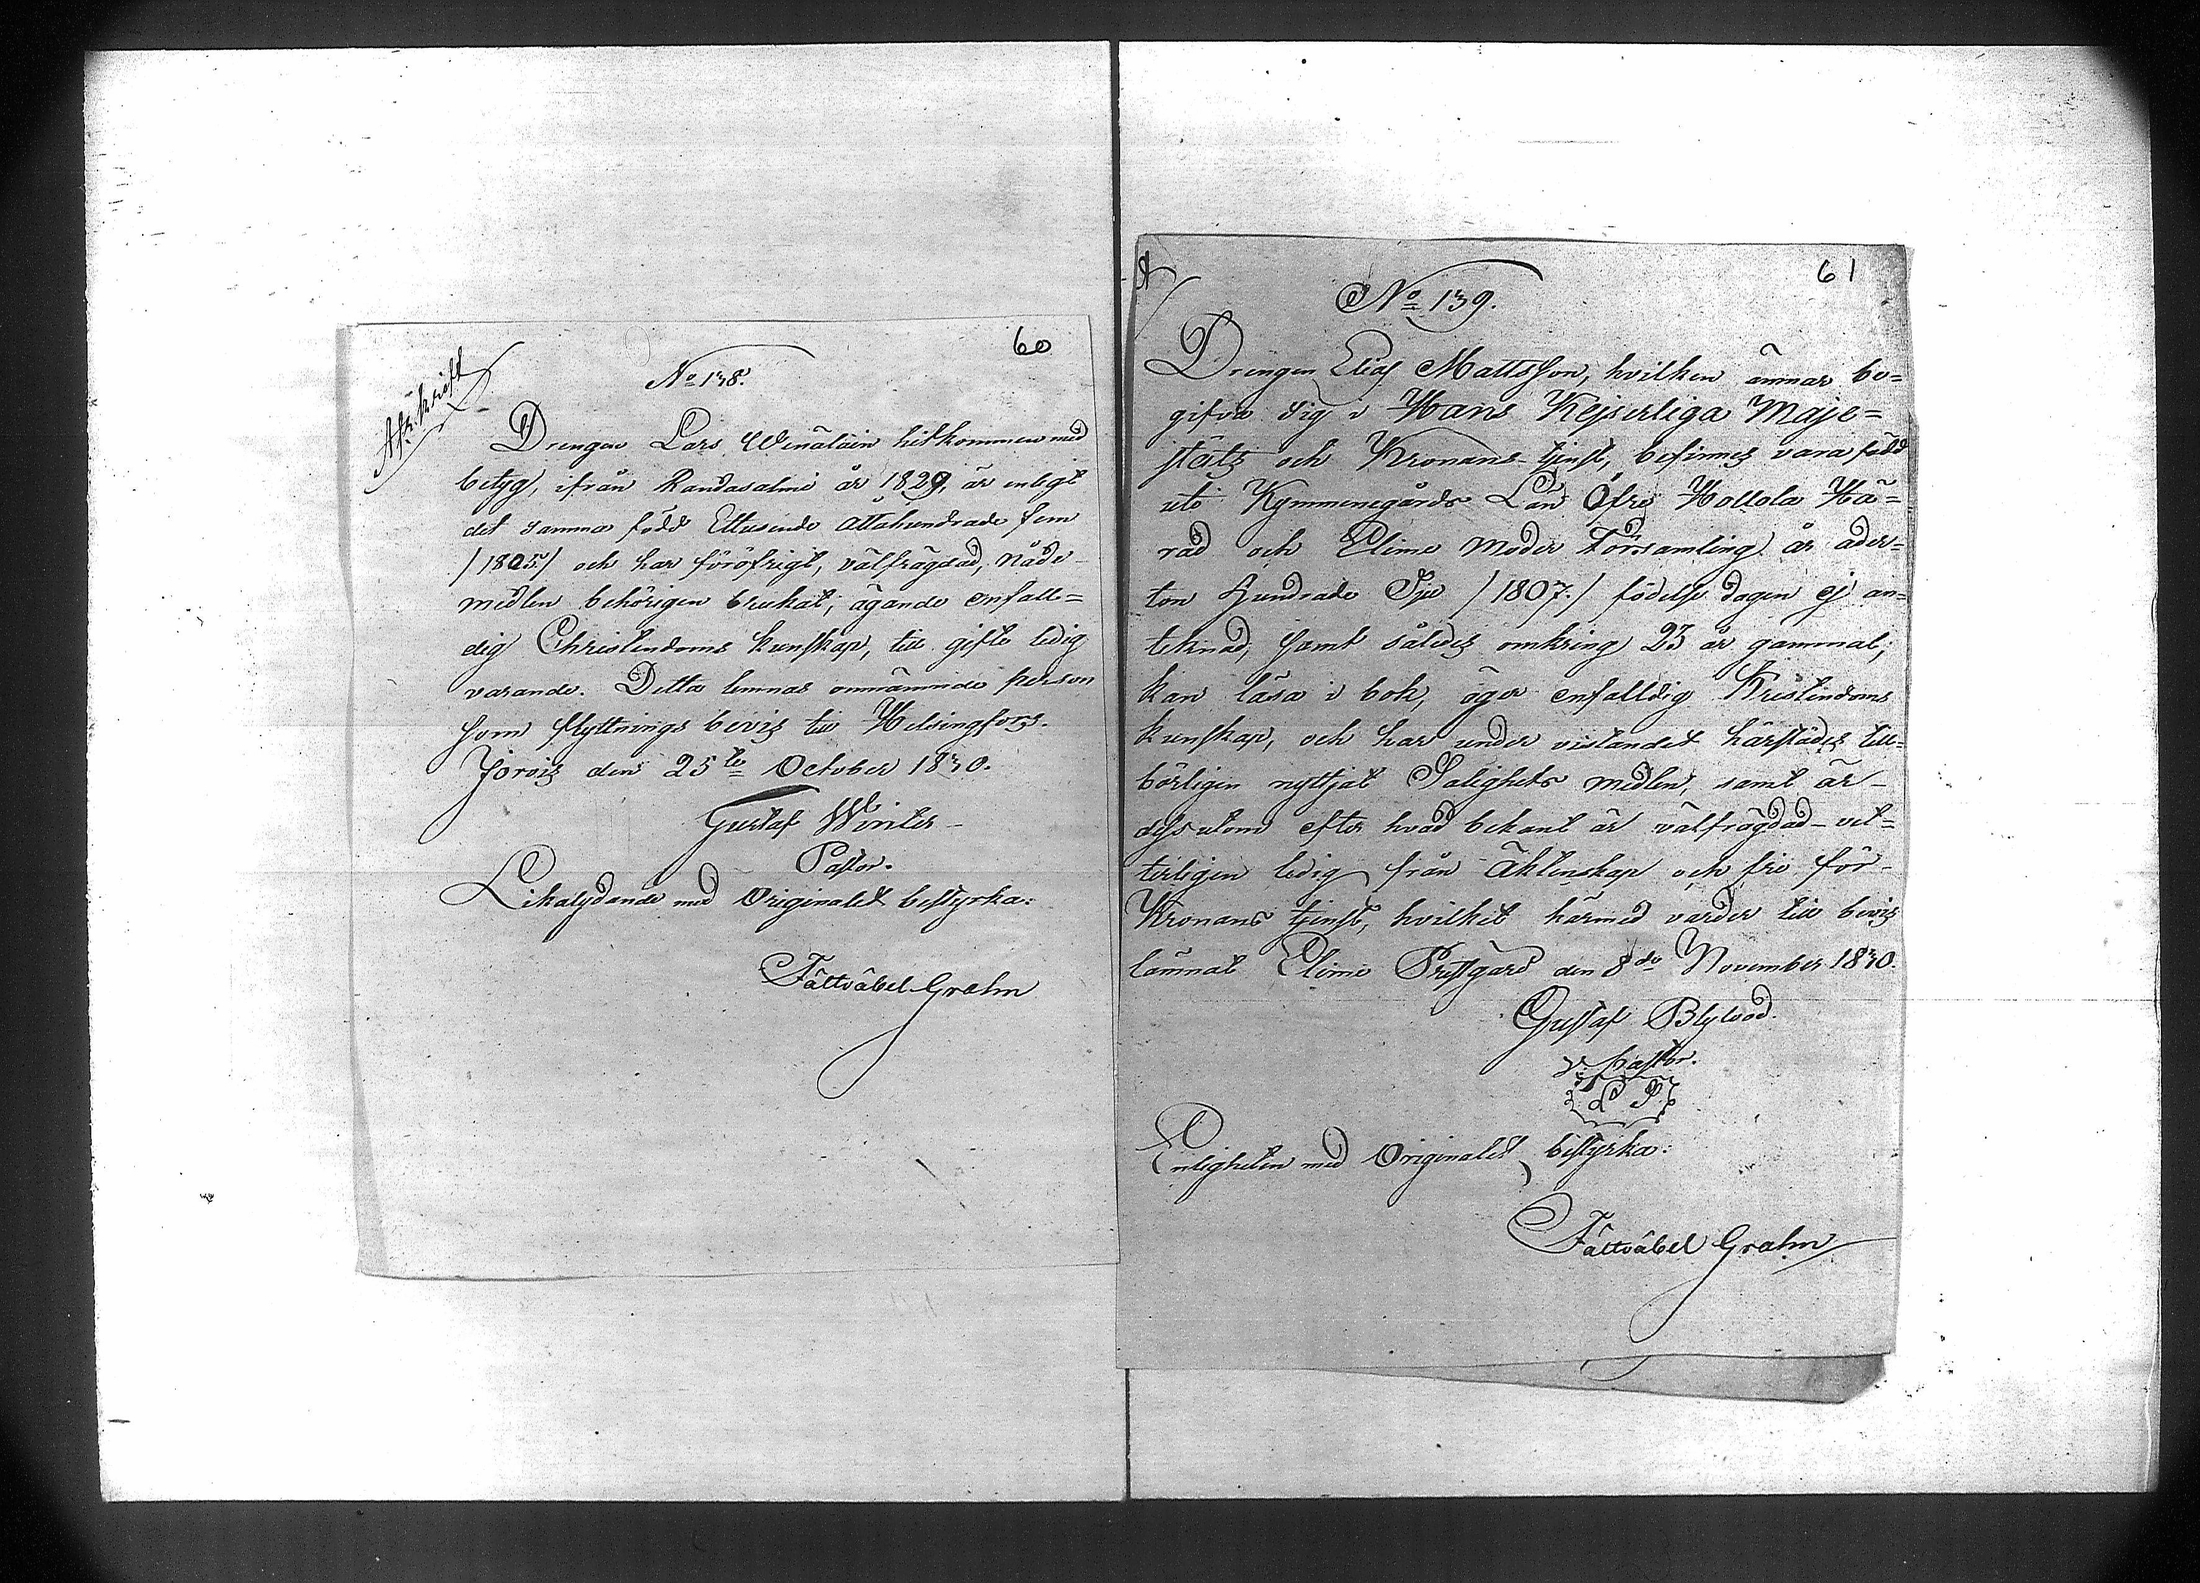 60
Afskrift
No 138.
Drengen Lars Winäläin hitkommen med
betyg, ifrån Randasalmi år 1829, är enligt
det samma född Ettusende åttahundrade fem
/1805/ och har föröfrigt, välfrägdad, Nåde-
medlen behörigen brukat; ägande enfall=
dig Christendoms kunskap, till gifte ledig
varande. Detta lemnas omnämnde person
som flyttnings bevis till Helsingfors.
Jorois den 25te October 1830.
Gustaf Winter
Pastor.
Likalydande med Originalet bestyrka:
Fältväbel Grahn
61
A
No 139.
Drengen Elias Mattsson, hvilken ämnar be=
gifva sig i Hans Kejserliga Maje=
stäts och Kronans tjenst, befinnes vara född
uti Kymmenegårds Län Öfre Hollola Hä=
rad och Elime Moder Församling år ader=
ton hundrade Sju /1807./ födelse dagen ej an=
teknad, samt således omkring 23 år gammal;
kan läsa i bok, äger enfalldig Kristendoms
kunskap, och har under vistandet härstädes till=
börligen nyttjat Salighets medlen, samt är
dessutom efter hvad bekant är välfrägdad vet=
terligen ledig från Äktenskap och fri för
Kronans tjenst, hvilket härmed varder till bevis
lämnat Elime Prestgård den 8de November 1830.
Gustaf Blylod
v. pastor.
L S
Enligheten med Originalet bestyrka:
Fältväbel Grahn